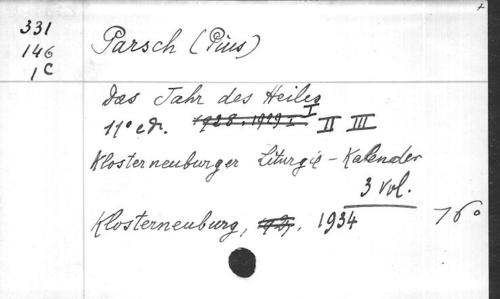 331
146
1C
Parsch (Pius)
Das Jahr des Heiles
11° ed. 1928, 1929 I I II III
Klosterneuburger Liturgie-Kalender
3 Vol.
Klosterneuburg, 1934
16°